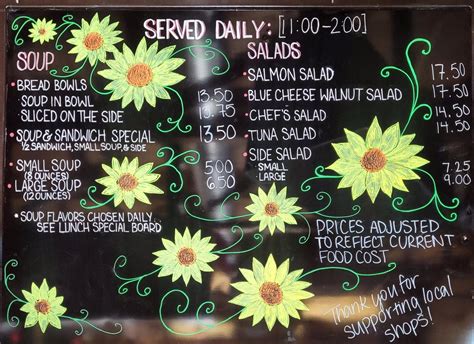 SERVED DAILY: [11:00-2:00]
SOUP
• BREAD BOWLS
SOUP IN BOWL 13.50
SLICED ON THE SIDE 13.75
• SOUP & SANDWICH SPECIAL 13.50
½ SANDWICH, SMALL SOUP, & SIDE
• SMALL SOUP 5.00
(8 OUNCES)
• LARGE SOUP 6.50
(12 OUNCES)
• SOUP FLAVORS CHOSEN DAILY
SEE LUNCH SPECIAL BOARD
SALADS
• SALMON SALAD 17.50
• BLUE CHEESE WALNUT SALAD 14.50
• CHEF'S SALAD 14.50
• TUNA SALAD 14.50
• SIDE SALAD
SMALL 7.25
LARGE 9.00
PRICES ADJUSTED
TO REFLECT CURRENT
FOOD COST
Thank you for
supporting local
shops!